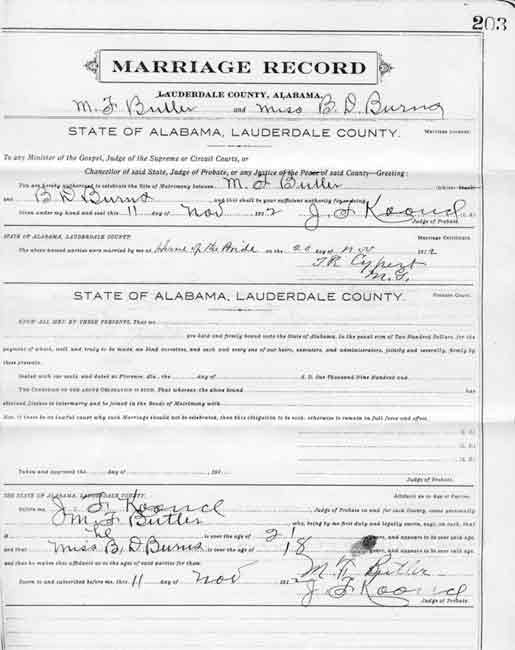 203
MARRIAGE RECORD
LAUDERDALE COUNTY, ALABAMA.
M. F Butler and Miss B. D. Burns
STATE OF ALABAMA, LAUDERDALE COUNTY. Marriage License.
To any Minister of the Gospel, Judge of the Supreme or Circuit Courts, or
Chancellor of said State, Judge of Probate, or any Justice of the Peace of said County—Greeting:
You are hereby authorized to celebrate the Rite of Matrimony between M. F Butler
and B D Burns and this shall be your sufficient authority for so doing.
Given under my hand and seal this 11 day of Nov 1912 J. F. Koonce (L. S.)
Judge of Probate.
STATE OF ALABAMA, LAUDERDALE COUNTY. Marriage Certificate.
The above named parties were married by me at Home of the Bride on the 20 day of Nov 1912
T.R. Cypert
M.G.
STATE OF ALABAMA, LAUDERDALE COUNTY. Probate Court.
KNOW ALL MEN BY THESE PRESENTS, That we
are held and firmly bound unto the State of Alabama, in the penal sum of Two Hundred Dollars, for the
payment of which, well and truly to be made, we bind ourselves, and each and every one of our heirs, executors, and administrators, jointly and severally, firmly by
these presents.
Sealed with our seals, and dated at Florence, Ala., the day of A. D. One Thousand Nine Hundred and
THE CONDITION OF THE ABOVE OBLIGATION IS SUCH, That whereas, the above bound has
obtained License to intermarry and be joined in the Bonds of Matrimony with
Now, if there be no lawful cause why such Marriage should not be celebrated, then this obligation to be void, otherwise to remain in full force and effect.
(L. S.)
(L. S.)
(L. S.)
Taken and approved the day of 191
Judge of Probate.
THE STATE OF ALABAMA, LAUDERDALE COUNTY. Affidavit as to Age of Parties.
Before me, J. F. Koonce Judge of Probate in and for said County, came personally
M. F Butler who, being by me first duly and legally sworn, says, on oath, that
he is over the age of 21 years, and appears to be over said age,
and that Miss B. D. Burns is over the age of 18 years, and appears to be over said age,
and that he makes this affidavit as to the ages of said parties for them.
M. F. Butler
Sworn to and subscribed before me, this 11 day of Nov 1912 J. F. Koonce
Judge of Probate.